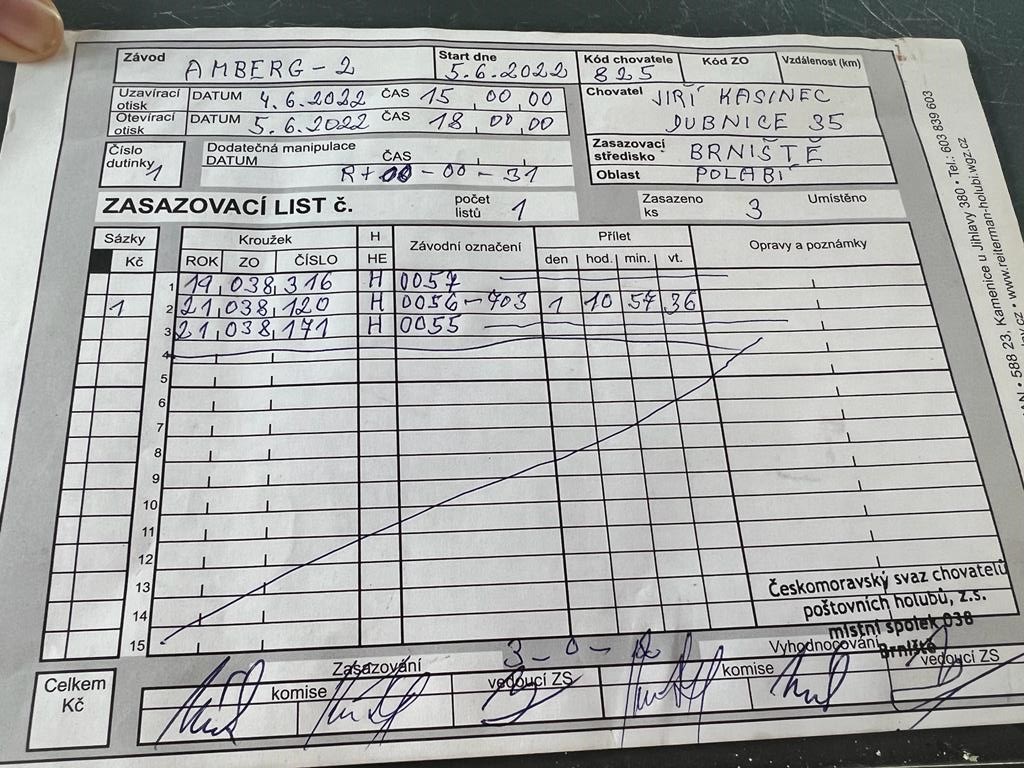 Závod AMBERG-2 Start dne 5.6.2022 Kód chovatele 825 Kód ZO Vzdálenost (km)
Uzavírací otisk DATUM 4.6.2022 ČAS 15 00,00
Otevírací otisk DATUM 5.6.2022 ČAS 18 00,00
Chovatel JIŘÍ KASINEC
DUBNICE 35
Číslo dutinky 1
Dodatečná manipulace
DATUM ČAS
R+00-00-31
Zasazovací středisko BRNIŠTĚ
Oblast POLABÍ
ZASAZOVACÍ LIST č. počet listů 1 Zasazeno ks 3 Umístěno
Sázky Kroužek H Závodní označení Přílet Opravy a poznámky
Kč ROK ZO ČÍSLO HE den hod. min. vt.
1 19,038,316 H 0057
1 2 21,038,120 H 0056-703 1 10 57 36
3 21,038,171 H 0055
4
5
6
7
8
9
10
11
12
13
14
15
Českomoravský svaz chovatelů
poštovních holubů, z.s.
místní spolek 038
Brniště
Celkem Kč
Zasazování Vyhodnocování
komise vedoucí ZS komise vedoucí ZS
588 23, Kamenice u Jihlavy 380 • Tel.: 603 839 603
www.reiterman-holubi.wgz.cz